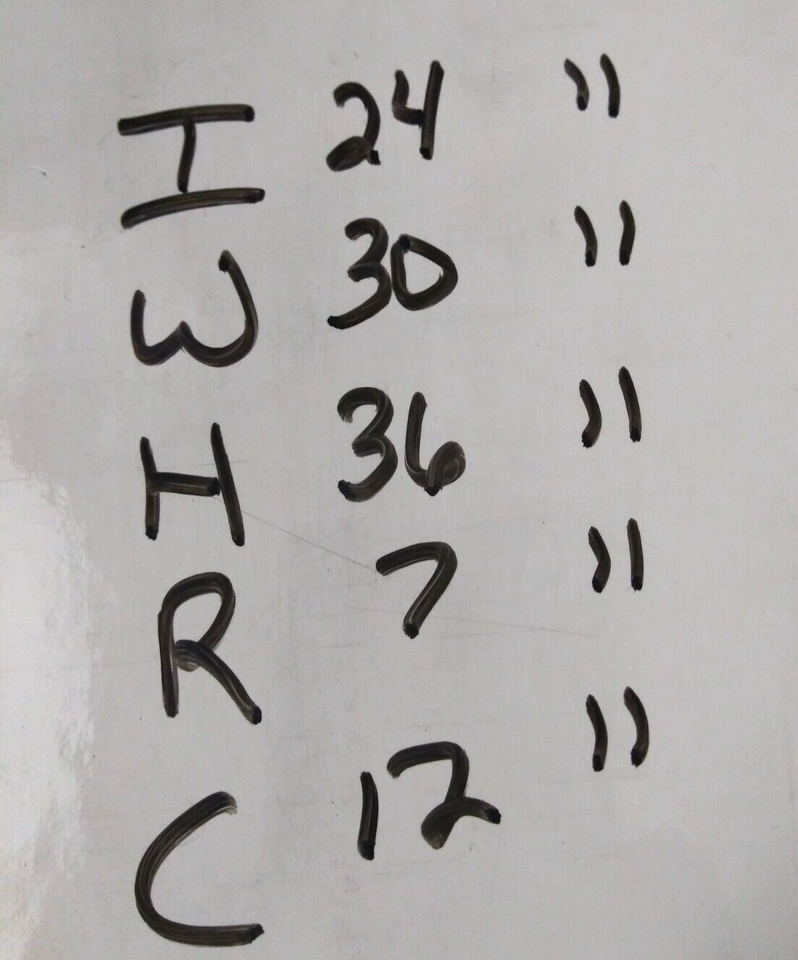 I 24 "
W 30 "
H 36 "
R 7 "
C 12 "